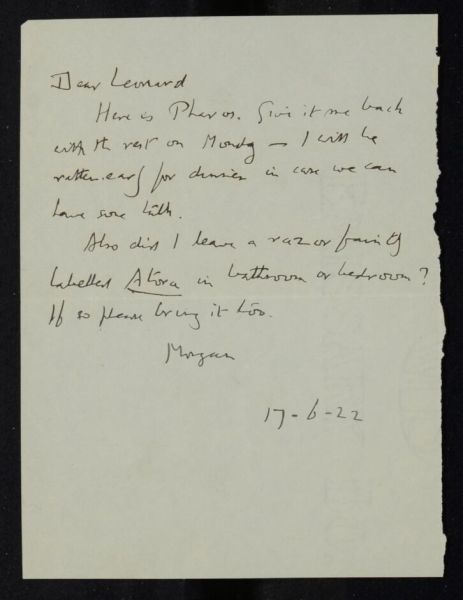 Dear Leonard
Here is Pharos. Give it me back
with the rest on Monday — I will be
rather early for dinner in case we can
have some talk.
Also did I leave a razor faintly
labelled Atora in bathroom or bedroom?
If so please bring it too.
Morgan
17-6-22